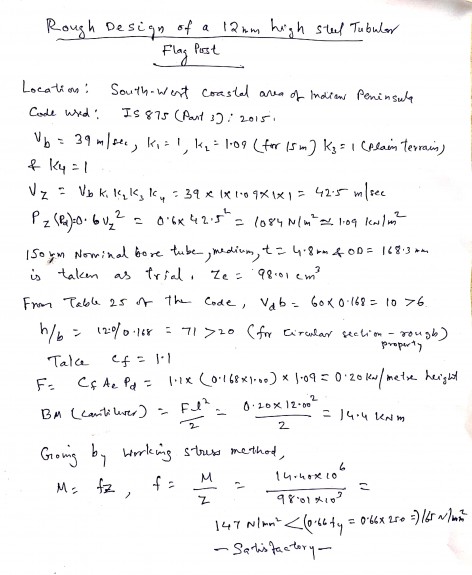 Rough Design of a 12 mm high steel Tubular
Flag Post
Location: South-West coastal area of Indian Peninsula
Code used: IS 875 (Part 3): 2015.
Vb = 39 m/sec, K1 = 1, K2 = 1.09 (for 15m) K3 = 1 (Plain terrain)
& K4 = 1
Vz = Vb K1 K2 K3 K4 = 39 x 1x1.09x1x1 = 42.5 m/sec
Pz (Pd) = 0.6 Vz² = 0.6x 42.5² = 1084 N/m² ≃ 1.09 kN/m²
150 mm Nominal bore tube, medium, t = 4.8 mm & OD = 168.3 mm
is taken as trial. Ze = 98.01 cm³
From Table 25 of the Code, Vdb = 60x0.168 = 10 > 6
h/b = 12.0/0.168 = 71 > 20 (for circular section - rough)
property
Take Cf = 1.1
F = Cf Ae Pd = 1.1x (0.168x1.00) x 1.09 = 0.20 kN/metre height
BM (Cantilever) = Fl²/2 = 0.20 x 12.00²/2 = 14.4 kNm
Going by working stress method,
M = fz, f = M/Z = 14.40x10⁶/98.01x10³ =
147 N/mm² < (0.66 fy = 0.66x 250 =) 165 N/mm²
- Satisfactory -